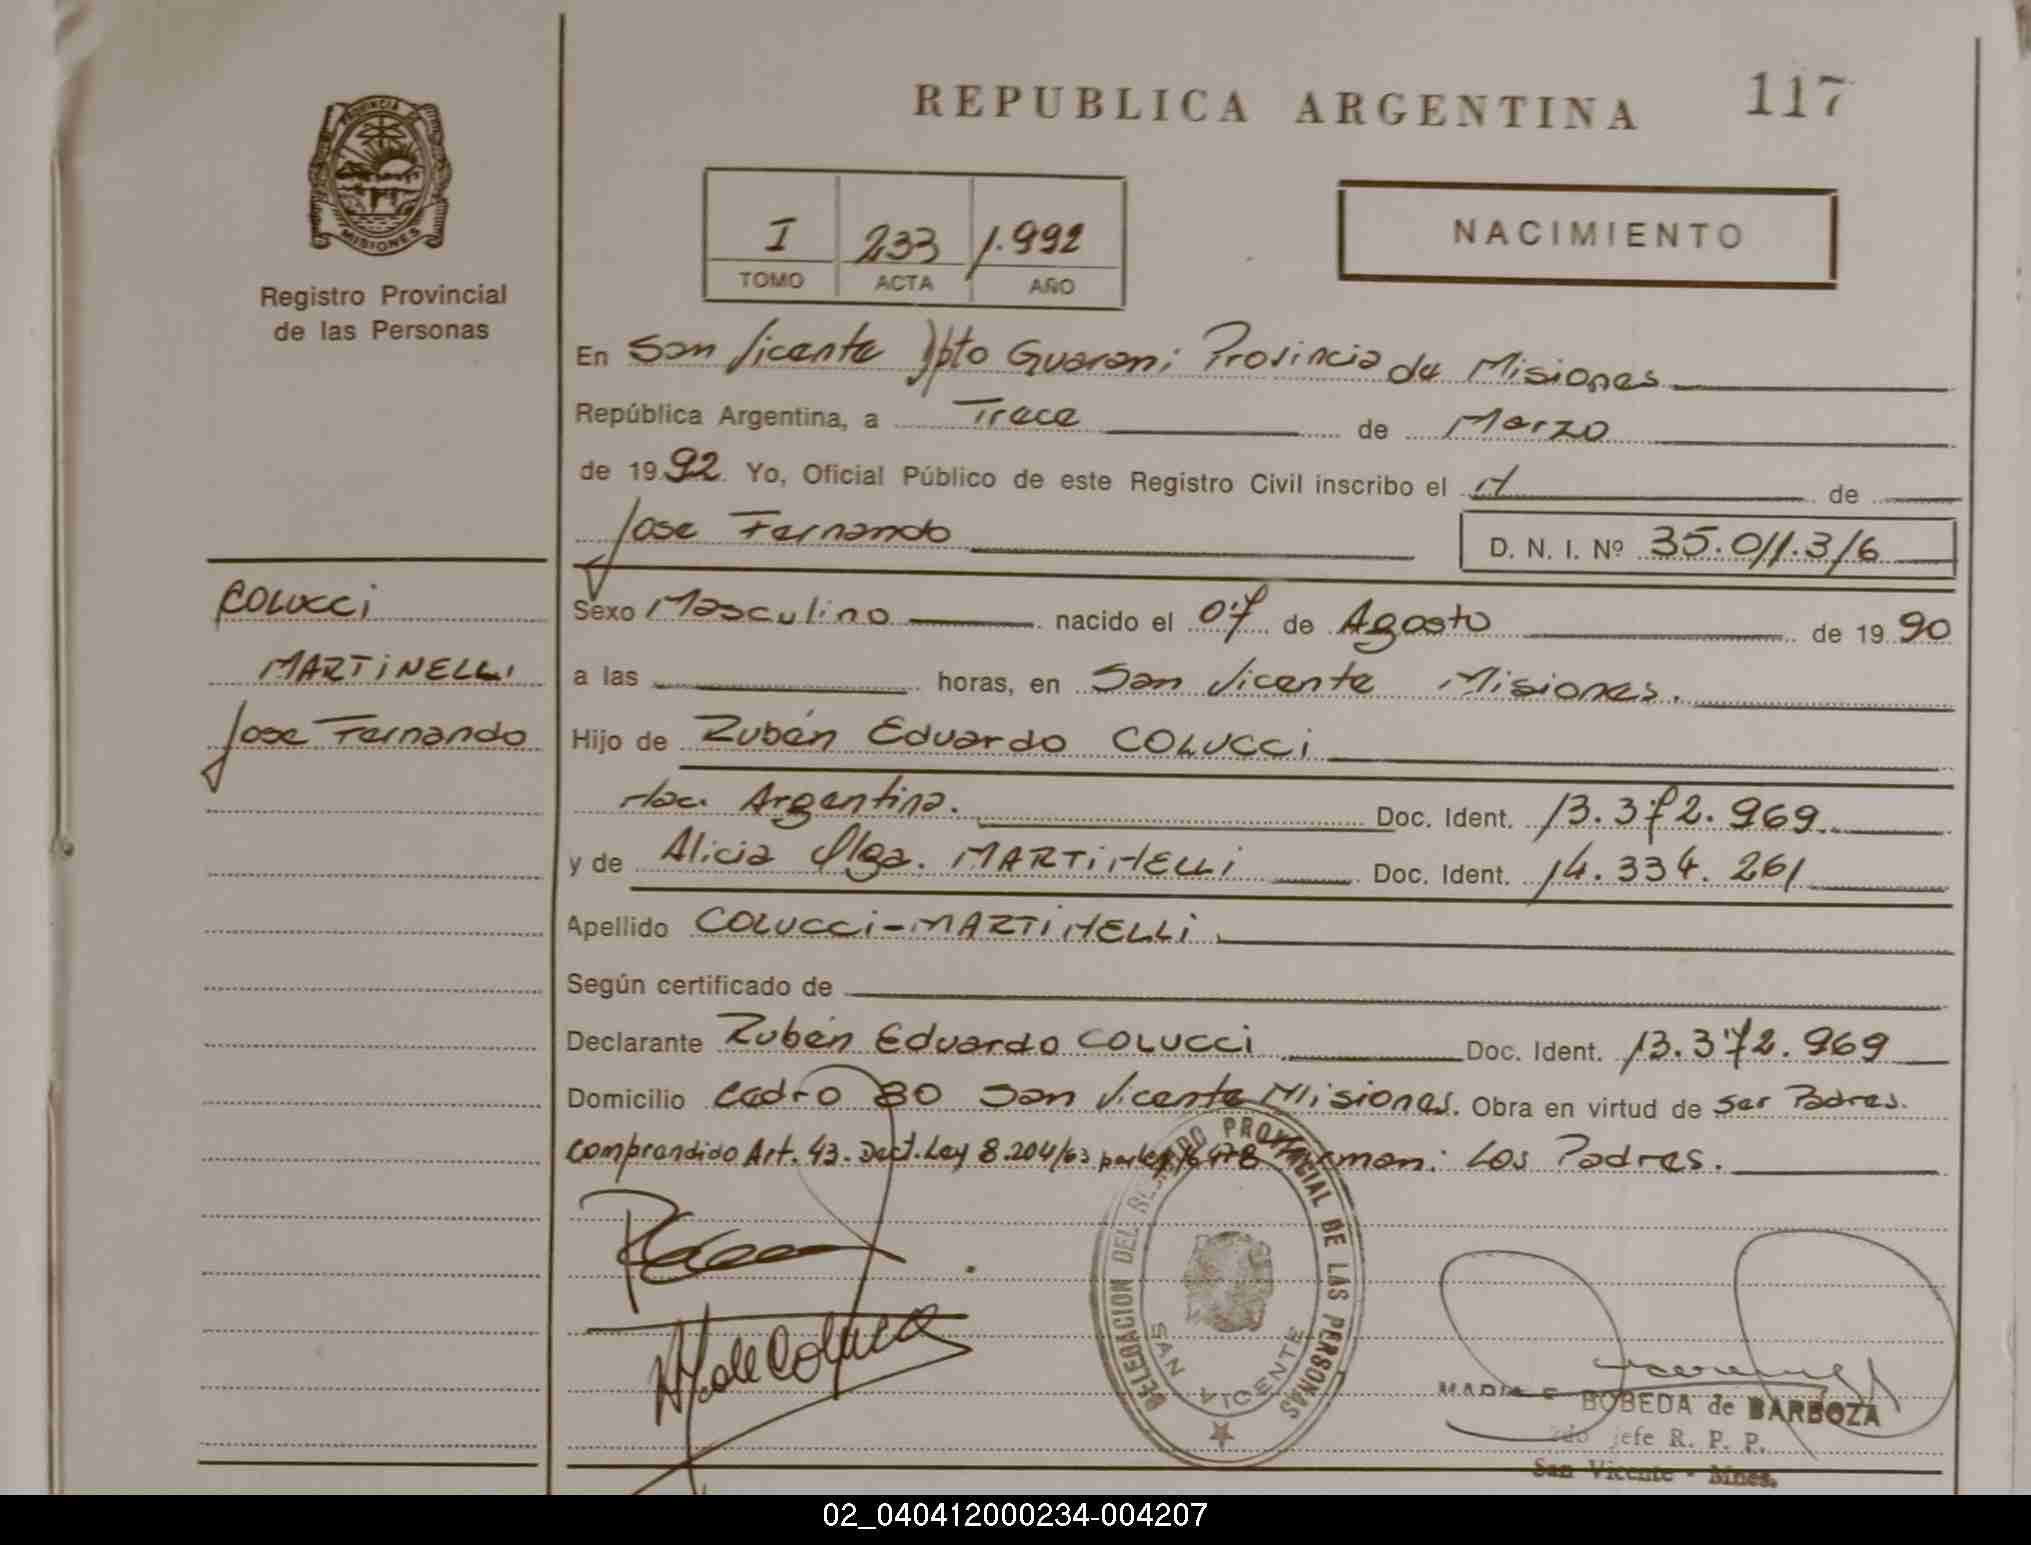 REPUBLICA ARGENTINA 117
PROVINCIA DE
MISIONES
Registro Provincial
de las Personas
I 233 1.992
TOMO ACTA AÑO
NACIMIENTO
En San Vicente Dpto Guarani Provincia de Misiones
República Argentina, a Trece de Marzo
de 1992. Yo, Oficial Público de este Registro Civil inscribo el N de
Jose Fernando D. N. I. Nº 35.011.316
COLUCCI
MARTINELLI
Jose Fernando
Sexo Masculino nacido el 07 de Agosto de 1990
a las horas, en San Vicente Misiones.
Hijo de Rubén Eduardo COLUCCI
Nac. Argentina. Doc. Ident. 13.372.969
y de Alicia Olga. MARTINELLI Doc. Ident. 14.334.261
Apellido COLUCCI-MARTINELLI.
Según certificado de
Declarante Rubén Eduardo COLUCCI Doc. Ident. 13.372.969
Domicilio Cedro 80 San Vicente Misiones. Obra en virtud de Ser Padres.
Comprendido Art. 43. Dect. Ley 8.204/63 Firman: Los Padres.
DELEGACION DEL REGISTRO PROVINCIAL DE LAS PERSONAS
SAN VICENTE
A. M. de Colucci
MARIA E. BOBEDA de BARBOZA
Jefe R. P. P.
San Vicente - Mnes.
02_040412000234-004207